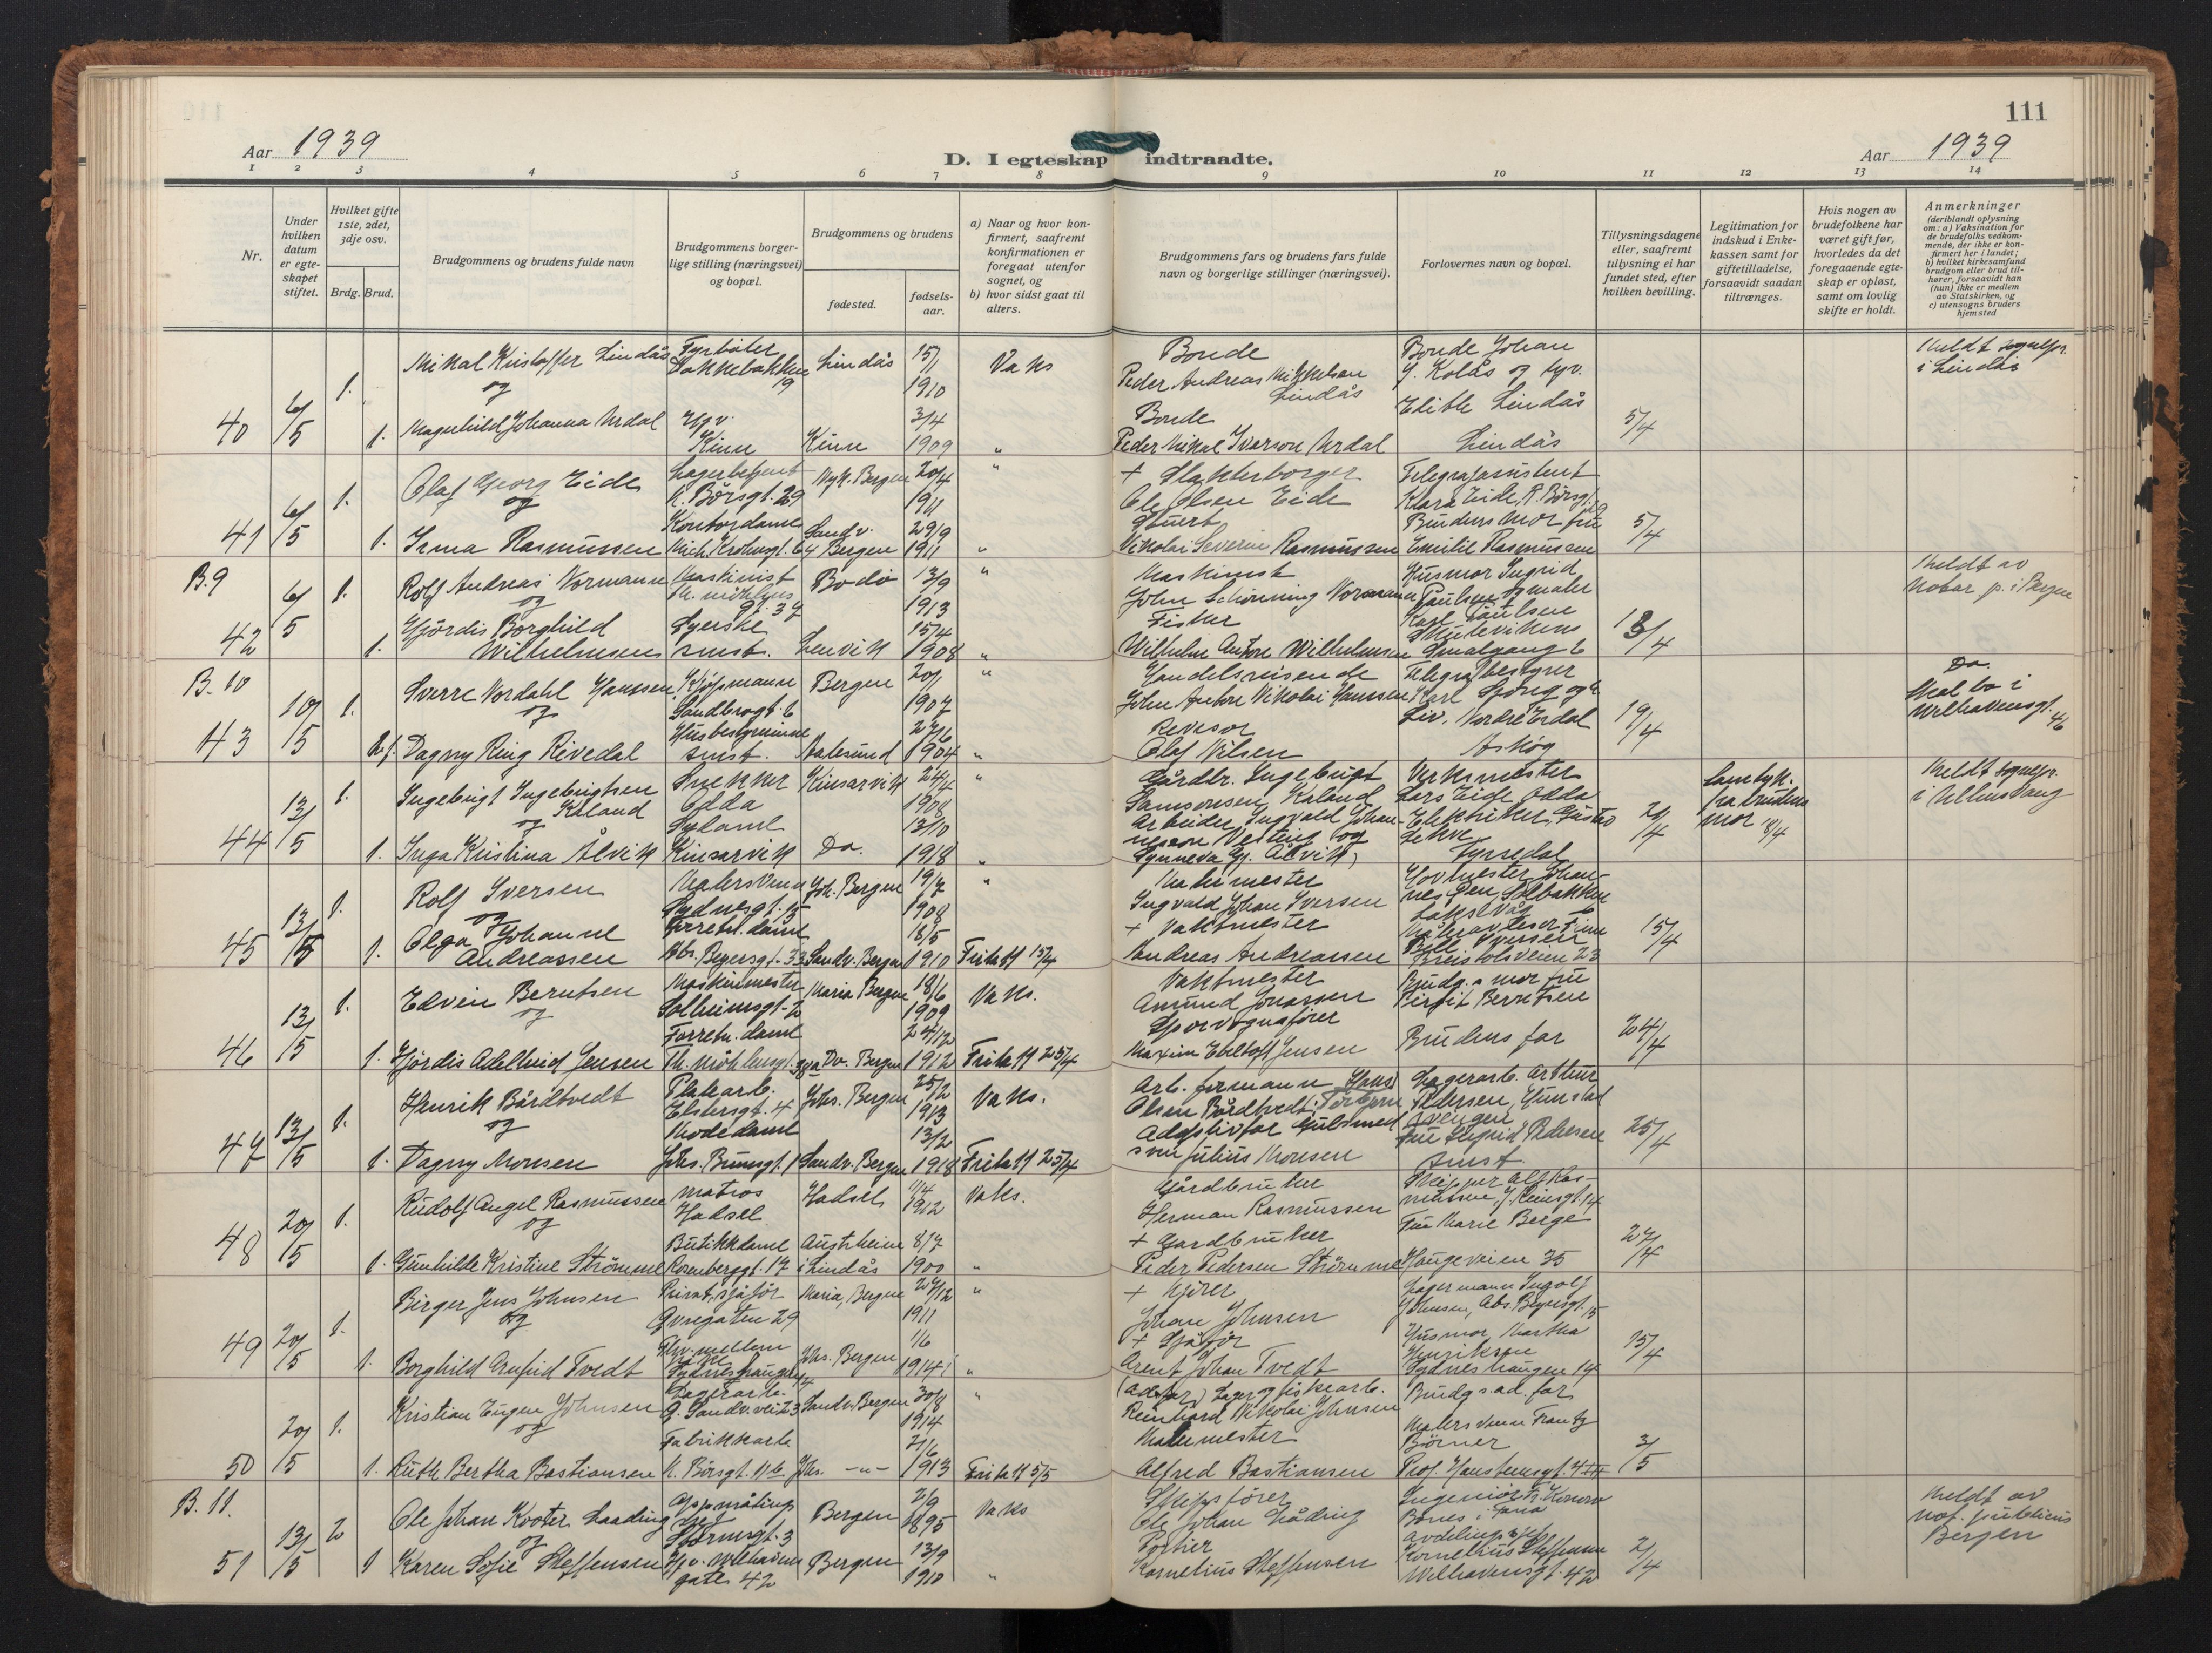 111
Aar 1939
D. I egteskap indtraadte.
Aar 1939
1 2 3 4 5 6 7 8 9 10 11 12 13 14
Nr.
Under hvilken datum er egteskapet stiftet.
Hvilket gifte 1ste, 2det, 3dje osv.
Brdg. Brud.
Brudgommens og brudens fulde navn
Brudgommens borgerlige stilling (næringsvei) og bopæl.
Brudgommens og brudens
fødested.
fødselsaar.
a) Naar og hvor konfirmert, saafremt konfirmationen er foregaat utenfor sognet, og
b) hvor sidst gaat til alters.
Brudgommens fars og brudens fars fulde navn og borgerlige stillinger (næringsvei).
Forlovernes navn og bopæl.
Tillysningsdagene eller, saafremt tillysning ei har fundet sted, efter hvilken bevilling.
Legitimation for indskud i Enkekassen samt for giftetilladelse, forsaavidt saadan tiltrænges.
Hvis nogen av brudefolkene har været gift før, hvorledes da det foregaaende egteskap er opløst, samt om lovlig skifte er holdt.
Anmerkninger
(deriblandt oplysning om: a) Vaksination for de brudefolks vedkommende, der ikke er konfirmert her i landet; b) hvilket kirkesamfund brudgom eller brud tilhører, forsaavidt han (hun) ikke er medlem av Statskirken, og c) utensogns bruders hjemsted
40 6/5 1. Mikal Kristoffer Lindås Fyrbøter 19 Lindås 15/1 1910 Vaks
Bonde Peder Andreas Mikkelsen Lindås Bonde Johan J. Kolås og hyv. Meldt sognepr. i Lindås
og
1. Magnhild Johanna Årdal Hyv. Kinn Kinn 3/4 1909 "
Bonde Peder Mikal Iverson Årdal Edith Lindås Lindås 5/4
41 6/5 1. Olaf Georg Eide Lagerbetjent N. Børsgt. 29 Nyk. Bergen 20/4 1911 "
+ Slakterborger Ole Olsen Eide Telegrafassistent Klara Eide, N. Børsgt. 29
og
1. Irma Rasmussen Kontordame Mich. Krohnsgt. 64 Sandv. Bergen 29/9 1911 "
Stuert Nikolai Severin Rasmussen Brudens mor fru Emilie Rasmussen 5/4
B.9
42 6/5 1. Rolf Andreas Normann Maskinist Th. Møhlens gt. 37 Bodø 13/9 1913 "
Maskinist John Schönning Normann Husmor Ingrid Paulsen og maler Karl Paulsen Meldt av
og
1. Hjördis Borghild Wilhelmsen Syerske smst. Lenvik 15/4 1908 "
Fisker Wilhelm Anton Wilhelmsen Skutevikens Smalgang 6 13/4
B. 10
43 10/5 1. Sverre Nordahl Hanssen Kjøpmann Sandbrogt. 6 Bergen 20/1 1907 "
Handelsreisende John Anton Nikolai Hanssen Telegrafbestyrer Karl Do. Skal bo i Welhavensgt. 46
og
Dagny Ring Rivedal Husbestyrerinne smst. Aalesund 27/6 1904 "
Revisor Olaf Nilsen Askøy 19/4
44 13/5 1. Ingebrigt Ingebrigtsen Kaland Snekker Odda Kinsarvik 24/4 1908 "
Gårdbr. Ingebrigt Samsonsen Kaland Verksmester Lars Eide Odda Samtyk. fra brudens mor 18/4 Meldt sognepr. i Ullensvang
og
1. Inga Kristina Ålvik Sydame Kinsarvik Do. 13/10 1918 "
Arbeider Ingvald Johannesson Elektriker Gustav Lekve Tyssedal 21/4
45 13/5 1. Rolf Iversen Malersvenn Sydnesgt. 15 Joh. Bergen 19/7 1908 "
Malermester Ingvald Johan Iversen Hovmester Johannes Solbakken 6 Laksevåg
og
1. Olga Johanne Andreassen Forretn. dame Abs. Beyersgt. 33 Sandv. Bergen 18/5 1910 Frita 11 15/4
+ Vaktmester Andreas Andreassen Iversen 23 15/4
46 13/5 1. Edvin Berntsen Maskinmester Solheimsgt. 2 Maria Bergen 18/6 1909 Vaks.
Vaktmester Amund Jonassen Brudg.s mor fru Berntsen
og
1. Hjördis Adelheid Jensen Forretn. dame Th. Møhlensgt. Do. Bergen 24/12 1912 Frita 11 25/4
Sporvognsfører Maxim Ebeltoft Jensen Brudens far 24/4
47 13/5 1. Henrik Bårdtvedt Platearb. Elstersgt. 4 Johs. Bergen 25/2 1913 Vaks.
Arb. formann Hans Olsen Bårdtvedt Lagerarb. Arthur Pedersen,
og
1. Dagny Monsen Modedame Johs. Brunsgt. 1 Sandv. Bergen 13/2 1918 Frita 11 25/4
Adoptivfar Gullsmed svenn Julius Monsen Fru Sigrid Pedersen smst. 25/4
48 20/5 1. Rudolf Angel Rasmussen matros Hadsel Hadsel 11/4 1912 Vaks.
Gårdbruker Herman Rasmussen Skipper Alf Rasmussen,
og
1. Gunhilde Kristine Strömme Butikkdame Rosenberggt. 17 Austrheim i Lindås 8/7 1900 "
+ Gardbruker Peder Pedersen Strömme Fru Marie Berge Haugeveien 35 27/4
49 20/5 1. Birger Jens Johnsen Privatsjåfør 29 Maria, Bergen 27/12 1911 "
+ Kjører Johan Johnsen Lagermann Ingolf Johnsen, Abs. Beyersgt. 15
og
1. Borghild Arnfrid Tvedt Sydneshaugen 14 Johs. Bergen 1/6 1914 "
+ Sjåfør Arent Johan Tvedt Husmor Martha Henriksen Sydneshaugen 14 15/4
50 20/5 1. Kristian Eugen Johnsen Lagerarb. Sandv. Bergen 30/8 1914 "
(ad. far) Lager og fiskearb. Reinhard Nikolai Johnsen Brudgs. ad. far
og
1. Ruth Bertha Bastiansen Fabrikkarb. N. Børsgt. 11b Johs. -"- 2/6 1913 Frita 11 5/5
Malermester Alfred Bastiansen Malersvenn Frantz Børner Prof. Hansteensgt. 4 III 3/5
B. 11.
51 13/5 2 Ole Johan Kooter Laading Stormsgt. 3 Bergen 2/9 1895 Vaks
Skipsfører Ole Johan Lådring Ingeniør Bønes i Fana Meldt av not. publicus Bergen
og
1 Karen Sofie Steffensen Hyv. Welhavens gate 42 Bergen 13/9 1910 "
Portier Kornelius Steffensen Kornelius Steffensen Welhavensgt. 42 2/4